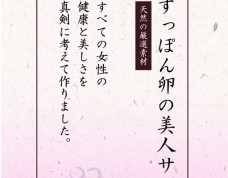 すっぽん卵の美人サ
天然の厳選素材
すべての女性の
健康と美しさを
真剣に考えて作りました。